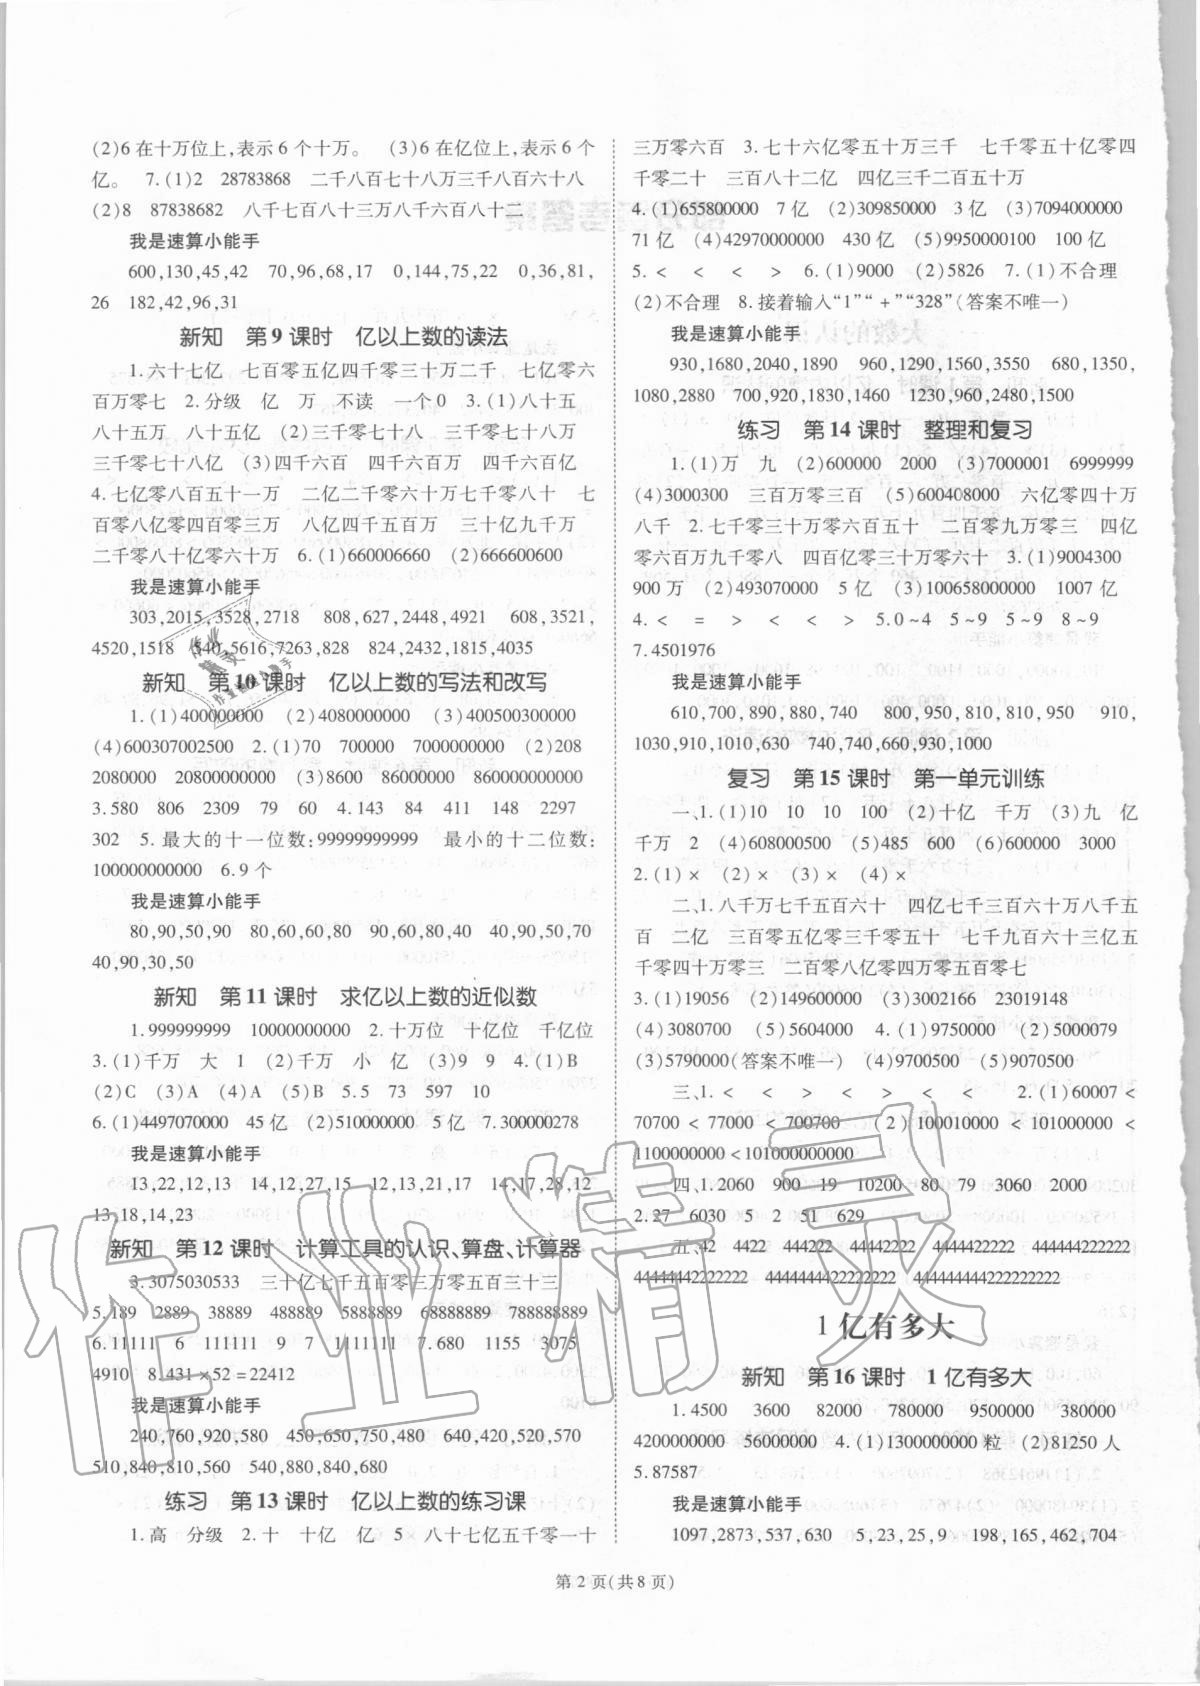 (2)6 在十万位上,表示 6 个十万。 (3)6 在亿位上,表示 6 个
亿。 7.(1)2 28783868 二千八百七十八万三千八百六十八
(2)8 87838682 八千七百八十三万八千六百八十二
我是速算小能手
600,130,45,42 70,96,68,17 0,144,75,25 0,36,81,
26 182,42,96,31
新知 第 9 课时 亿以上数的读法
1.六十七亿 七百零五亿四千零三十万二千 七亿零六
百万零七 2.分级 亿 万 不读 一个0 3.(1)八十五
八十五万 八十五亿 (2)三千零七十八 三千零七十八万
三千零七十八亿 (3)四千六百 四千六百万 四千六百亿
4.七亿零八百五十一万 二亿二千零六十万七千零八十 七
百零八亿零四百零三万 八亿四千五百万 三十亿九千万
二千零八十亿零六十万 6.(1)660006660 (2)666600600
我是速算小能手
303,2015,3528,2718 808,627,2448,4921 608,3521,
4520,1518 540,5616,7263,828 824,2432,1815,4035
新知 第 10 课时 亿以上数的写法和改写
1.(1)400000000 (2)4080000000 (3)400500300000
(4)600307002500 2.(1)70 700000 7000000000 (2)208
2080000 20800000000 (3)8600 86000000 860000000000
3.580 806 2309 79 60 4.143 84 411 148 2297
302 5.最大的十一位数:99999999999 最小的十二位数:
100000000000 6.9 个
我是速算小能手
80,90,50,90 80,60,60,80 90,60,80,40 40,90,50,70
40,90,30,50
新知 第 11 课时 求亿以上数的近似数
1.999999999 10000000000 2.十万位 十亿位 千亿位
3.(1)千万 大 1 (2)千万 小 亿 (3)9 9 4.(1)B
(2)C (3)A (4)A (5)B 5.5 73 597 10
6.(1)4497070000 45 亿 (2)510000000 5 亿 7.300000278
我是速算小能手
13,22,12,13 14,12,27,15 12,13,21,17 14,17,28,12
13,18,14,23
新知 第 12 课时 计算工具的认识、算盘、计算器
3.3075030533 三十亿七千五百零三万零五百三十三
5.189 2889 38889 488889 5888889 68888889 788888889
6.11111 6 111111 9 7 1111111 7.680 1155 3075
4910 8.431×52=22412
我是速算小能手
240,760,920,580 450,650,750,480 640,420,520,570
510,840,810,560 540,880,840,680
练习 第 13 课时 亿以上数的练习课
1.高 分级 2.十 十亿 亿 5 八十七亿五千零一十
三万零六百 3.七十六亿零五十万三千 七千零五十亿零四
千零二十 三百八十二亿 四亿三千二百五十万
4.(1)655800000 7 亿 (2)309850000 3 亿 (3)7094000000
71 亿 (4)42970000000 430 亿 (5)9950000100 100 亿
5.< < < > 6.(1)9000 (2)5826 7.(1)不合理
(2)不合理 8.接着输入“1”“+”“328”(答案不唯一)
我是速算小能手
930,1680,2040,1890 960,1290,1560,3550 680,1350,
1080,2880 700,920,1830,1460 1230,960,2480,1500
练习 第 14 课时 整理和复习
1.(1)万 九 (2)600000 2000 (3)7000001 6999999
(4)3000300 三百万零三百 (5)600408000 六亿零四十万
八千 2.七千零三十万零六百五十 二百零九万零三 四亿
零六百万九千零八 四百亿零三十万零六十 3.(1)9004300
900 万 (2)493070000 5 亿 (3)100658000000 1007 亿
4.< = > < < > 5.0~4 5~9 5~9 8~9
7.4501976
我是速算小能手
610,700,890,880,740 800,950,810,810,950 910,
1030,910,1010,630 740,740,660,930,1000
复习 第 15 课时 第一单元训练
一、1.(1)10 10 100 (2)十亿 千万 (3)九 亿
千万 2 (4)608000500 (5)485 600 (6)600000 3000
2.(1)× (2)× (3)× (4)×
二、1.八千万七千五百六十 四亿七千三百六十万八千五
百 二亿 三百零五亿零三千零五十 七千九百六十三亿五
千零四十万零三 二百零八亿零四万零五百零七
3.(1)19056 (2)149600000 (3)3002166 23019148
(4)3080700 (5)5604000 4.(1)9750000 (2)5000079
(3)5790000(答案不唯一) (4)9700500 (5)9070500
三、1.< < < > < < < 2.(1)60007<
70700<77000<700700 (2)100010000<101000000<
1100000000<101000000000
四、1.2060 900 19 10200 80 79 3060 2000
2.27 6030 5 2 51 629
五、42 4422 444222 44442222 4444422222 444444222222
44444442222222 4444444422222222 444444444222222222
1 亿有多大
新知 第 16 课时 1 亿有多大
1.4500 3600 82000 780000 9500000 380000
4200000000 56000000 4.(1)1300000000 粒 (2)81250 人
5.87587
我是速算小能手
1097,2873,537,630 5,23,25,9 198,165,462,704
第 2 页(共 8 页)
作业精灵